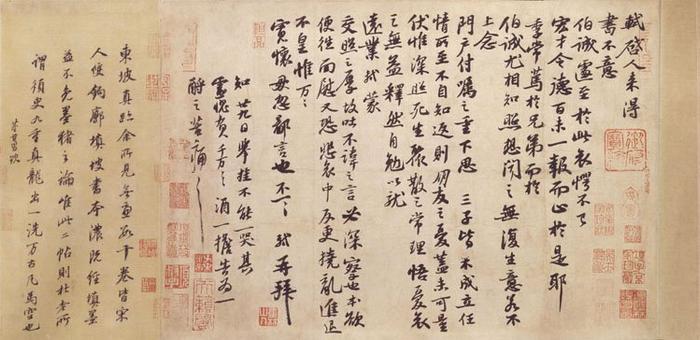 軾啓人來得
書不意
伯誠遽至於此哀愕不已
宏才令德百未一報而止於是耶
季常篤於兄弟而於
伯誠尤相知照想聞之無復生意若不
上念
門戶付囑之重下思三子皆不成立任
情所至不自知返則朋友之憂蓋未可量
伏惟深照死生聚散之常理悟憂哀
之無益釋然自勉以就
遠業軾蒙
交照之厚故吐不諱之言必深察也本欲
便往面慰又恐悲哀中反更撓亂進退
不皇惟万万
寬懷毋忽鄙言也不一一軾再拜
知廿九日舉挂不能一哭其
靈愧負千万千万酒一擔告為一
酹之苦痛苦痛
東坡真跡余所見無慮數十卷皆宋
人雙鉤廓填坡書本濃既經填墨
益不免墨豬之論唯此二帖則杜老所
謂須臾九重真龍出一洗万古凡馬空也
董其昌跋